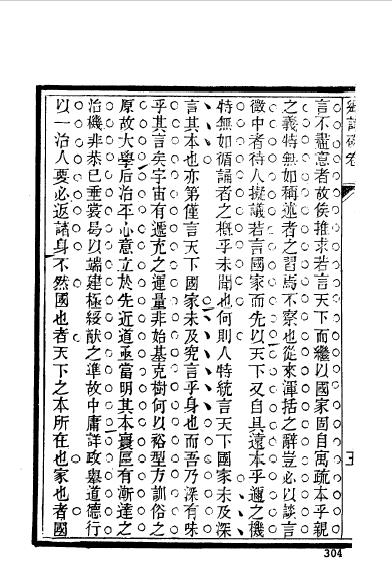 言不盡意者故俟推求若言天下而繼以國家固自寓疏本乎親
之義特無如稱述者之習焉不察也從來渾括之辭豈必以談言
微中者待人擬議若言國家而先以天下又自具遠本乎邇之機
特無如循誦者之槪乎未聞也何則人特統言天下國家未及深
言其本也亦第僅言天下國家未及究言乎身也而吾乃深有味
乎其言矣宇宙有遞充之運量非始基克樹何以裕型方訓俗之
原故大學后治平心意立於先近道亟當明其本寰區有漸達之
治機非恭己垂裳曷以端建極綏猷之準故中庸詳政舉道德行
以一治人要必返諸身不然國也者天下之本所在也家也者國
304